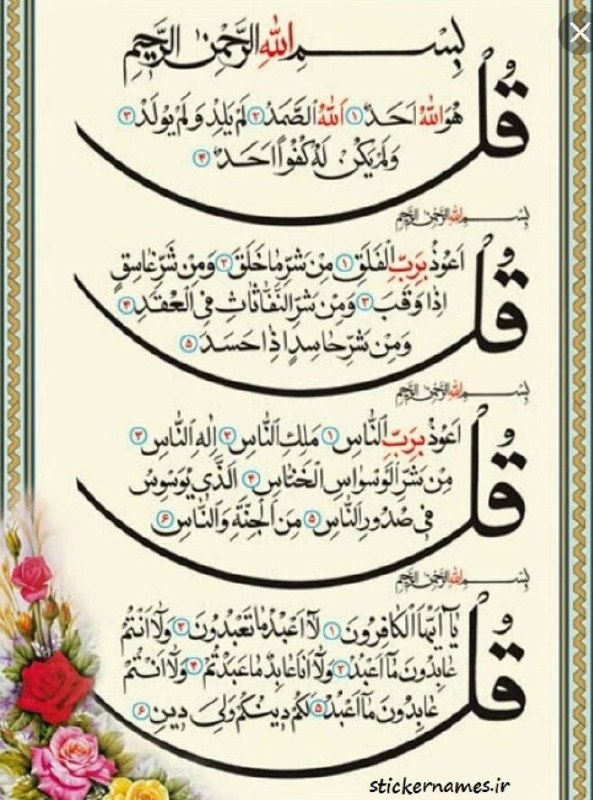 بِسْمِ اللهِ الرَّحْمٰنِ الرَّحِيمِ
قُلْ
هُوَ اللهُ اَحَدٌ ۱ اَللهُ الصَّمَدُ ۲ لَمْ يَلِدْ وَلَمْ يُولَدْ ۳
وَلَمْ يَكُنْ لَهُ كُفُوًا اَحَدٌ ۴
بِسْمِ اللهِ الرَّحْمٰنِ الرَّحِيمِ
قُلْ
اَعُوذُ بِرَبِّ الْفَلَقِ ۱ مِنْ شَرِّ مَا خَلَقَ ۲ وَمِنْ شَرِّ غَاسِقٍ
اِذَا وَقَبَ ۳ وَمِنْ شَرِّ النَّفَّاثَاتِ فِي الْعُقَدِ ۴
وَمِنْ شَرِّ حَاسِدٍ اِذَا حَسَدَ ۵
بِسْمِ اللهِ الرَّحْمٰنِ الرَّحِيمِ
قُلْ
اَعُوذُ بِرَبِّ النَّاسِ ۱ مَلِكِ النَّاسِ ۲ اِلٰهِ النَّاسِ ۳
مِنْ شَرِّ الْوَسْوَاسِ الْخَنَّاسِ ۴ اَلَّذِي يُوَسْوِسُ
فِي صُدُورِ النَّاسِ ۵ مِنَ الْجِنَّةِ وَالنَّاسِ ۶
بِسْمِ اللهِ الرَّحْمٰنِ الرَّحِيمِ
قُلْ
يَا اَيُّهَا الْكَافِرُونَ ۱ لَا اَعْبُدُ مَا تَعْبُدُونَ ۲ وَلَا اَنْتُمْ
عَابِدُونَ مَا اَعْبُدُ ۳ وَلَا اَنَا عَابِدٌ مَا عَبَدْتُمْ ۴ وَلَا اَنْتُمْ
عَابِدُونَ مَا اَعْبُدُ ۵ لَكُمْ دِينُكُمْ وَلِيَ دِينِ ۶
stickernames.ir